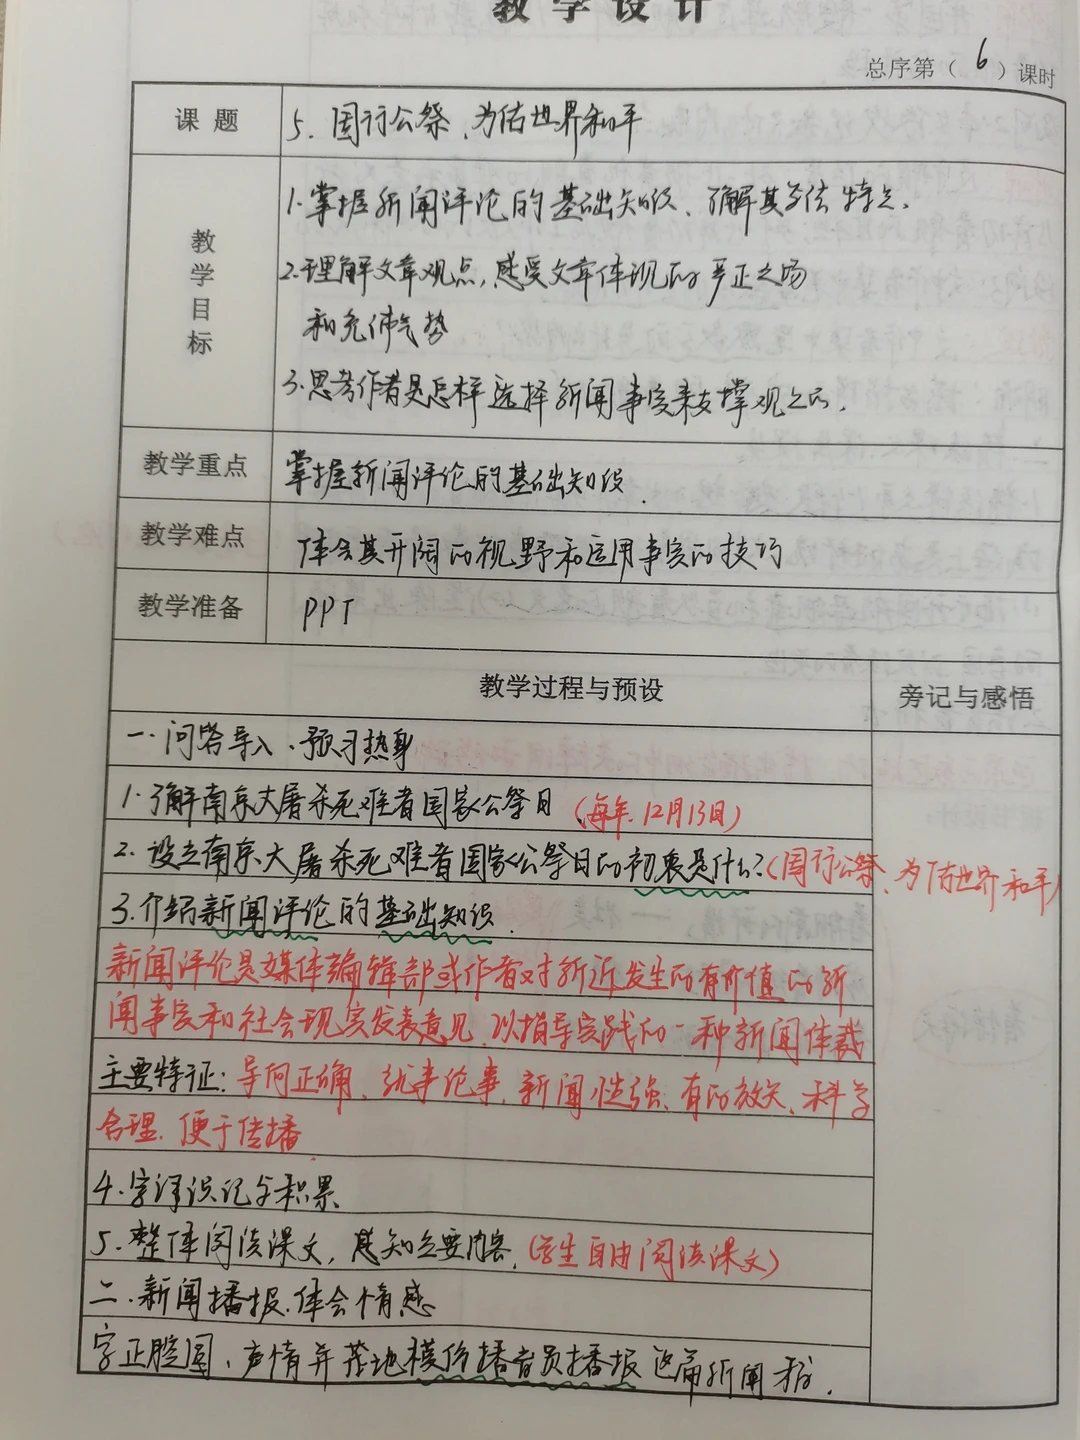 教学设计
总序第（6）课时
课题 5.国行公祭、为佑世界和平
教学目标
1.掌握新闻评论的基础知识、了解其写法特点.
2.理解文章观点,感受文章体现的严正立场
和充沛气势
3.思考作者是怎样选择新闻事实来支撑观点的.
教学重点 掌握新闻评论的基础知识.
教学难点 体会其开阔的视野和运用事实的技巧
教学准备 PPT
教学过程与预设 旁记与感悟
一.问答导入、预习热身
1.了解南京大屠杀死难者国家公祭日(每年12月13日)
2.设立南京大屠杀死难者国家公祭日的初衷是什么?(国行公祭、为佑世界和平)
3.介绍新闻评论的基础知识.
新闻评论是媒体编辑部或作者对新近发生的有价值的新
闻事实和社会现实发表意见,以指导实践的一种新闻体裁
主要特征:导向正确、就事论事、新闻性强、有的放矢、科学
合理、便于传播.
4.字词识记与积累
5.整体阅读课文,感知主要内容.(学生自由阅读课文)
二.新闻播报、体会情感
字正腔圆、声情并茂地模仿播音员播报这篇新闻稿.